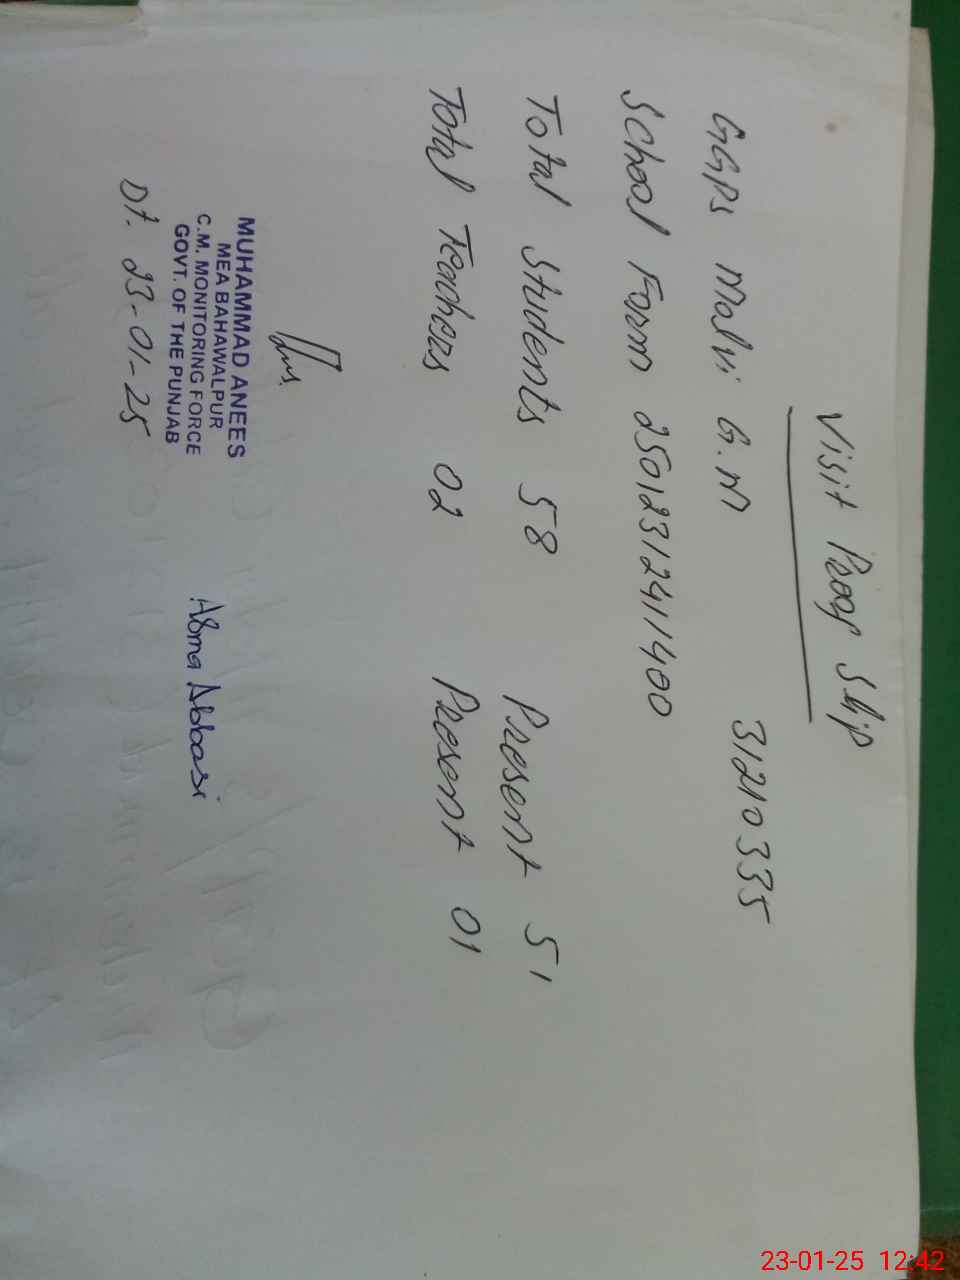 Visit Proof Slip
GGPS Malvi G.M 31210335
School Form 25012312411400
Total Students 58 Present 51
Total Teachers 02 Present 01
MUHAMMAD ANEES
MEA BAHAWALPUR
C.M. MONITORING FORCE
GOVT. OF THE PUNJAB
Dt. 23-01-25
Asma Abbasi
23-01-25 12:42